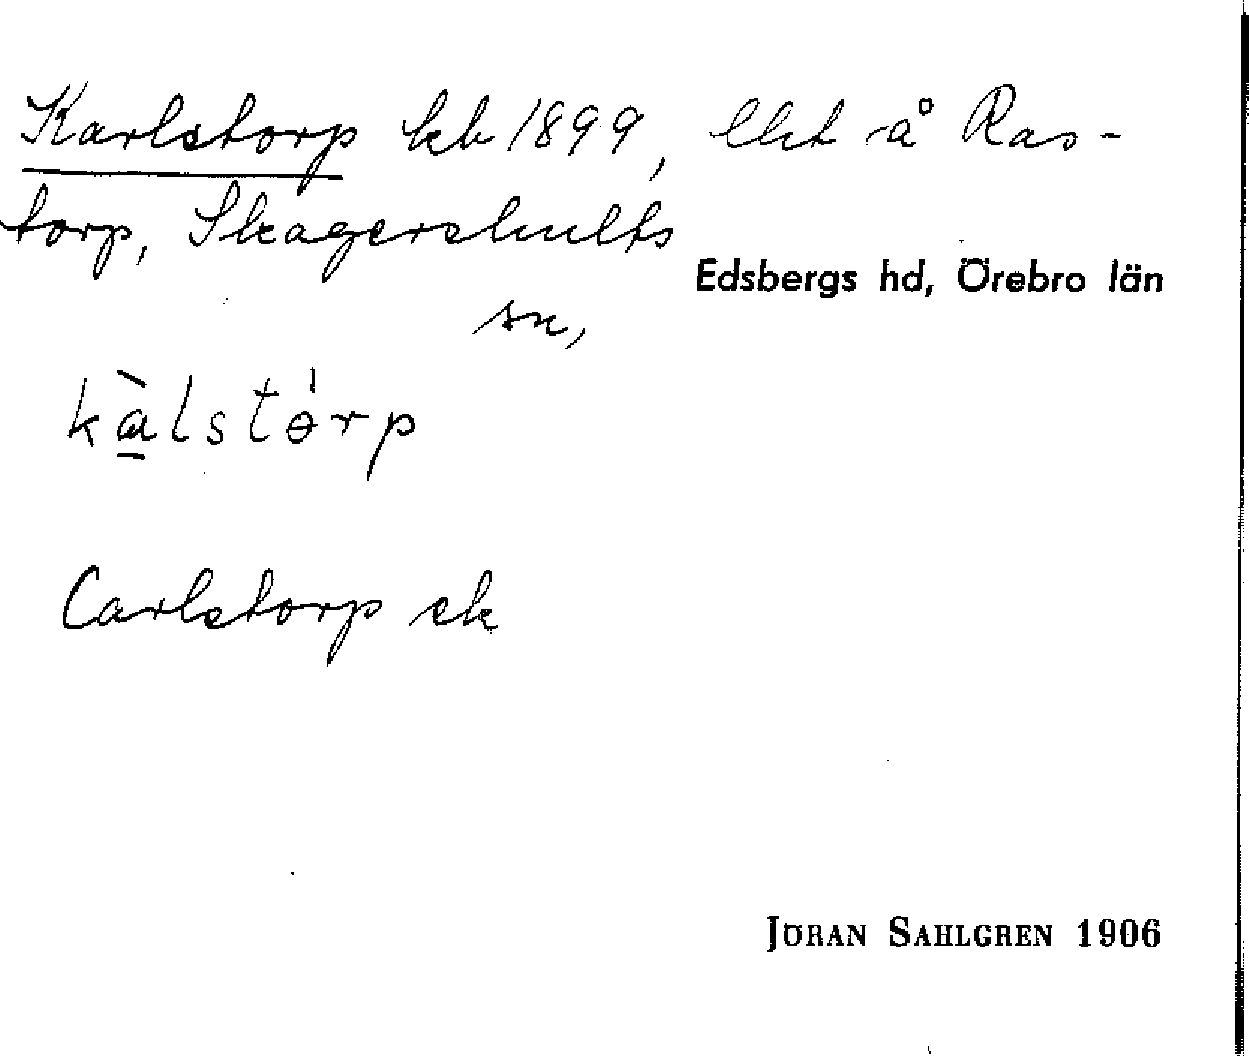 Karlstorp kb 1899, lht å Ras-
torp, Skagershults
Edsbergs hd, Örebro län
sn,
kàlstórp
Carlstorp sk
JÖRAN SAHLGREN 1906